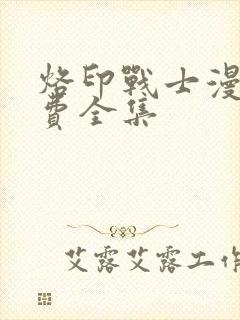 烙印戰士漫
費全集
艾露艾露工作